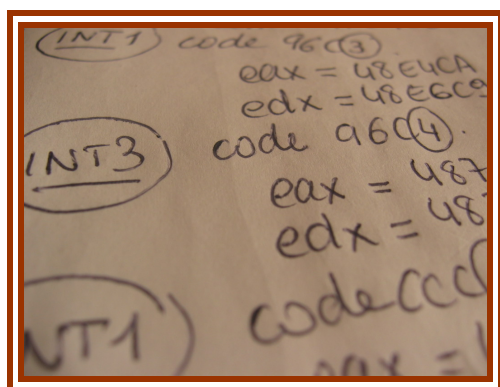 INT1 code 96C3
eax = 48E4CA
edx = 48E6C9
INT3 code 96C4.
eax = 487
edx = 48
NT1 code CCC
eax =